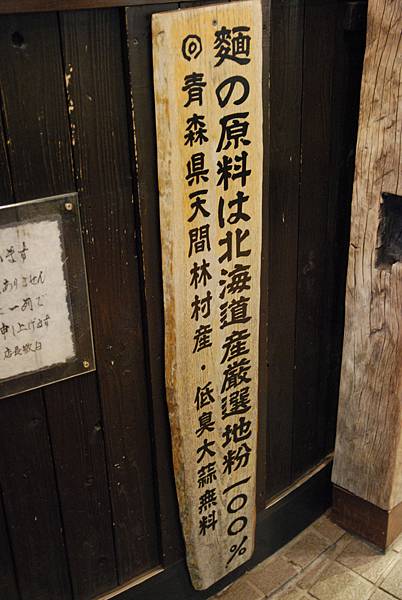 麺の原料は北海道産厳選地粉一〇〇%
◎青森県天間林村産・低臭大蒜無料
ます
ありません
一同で
申し上げます
店長敬白